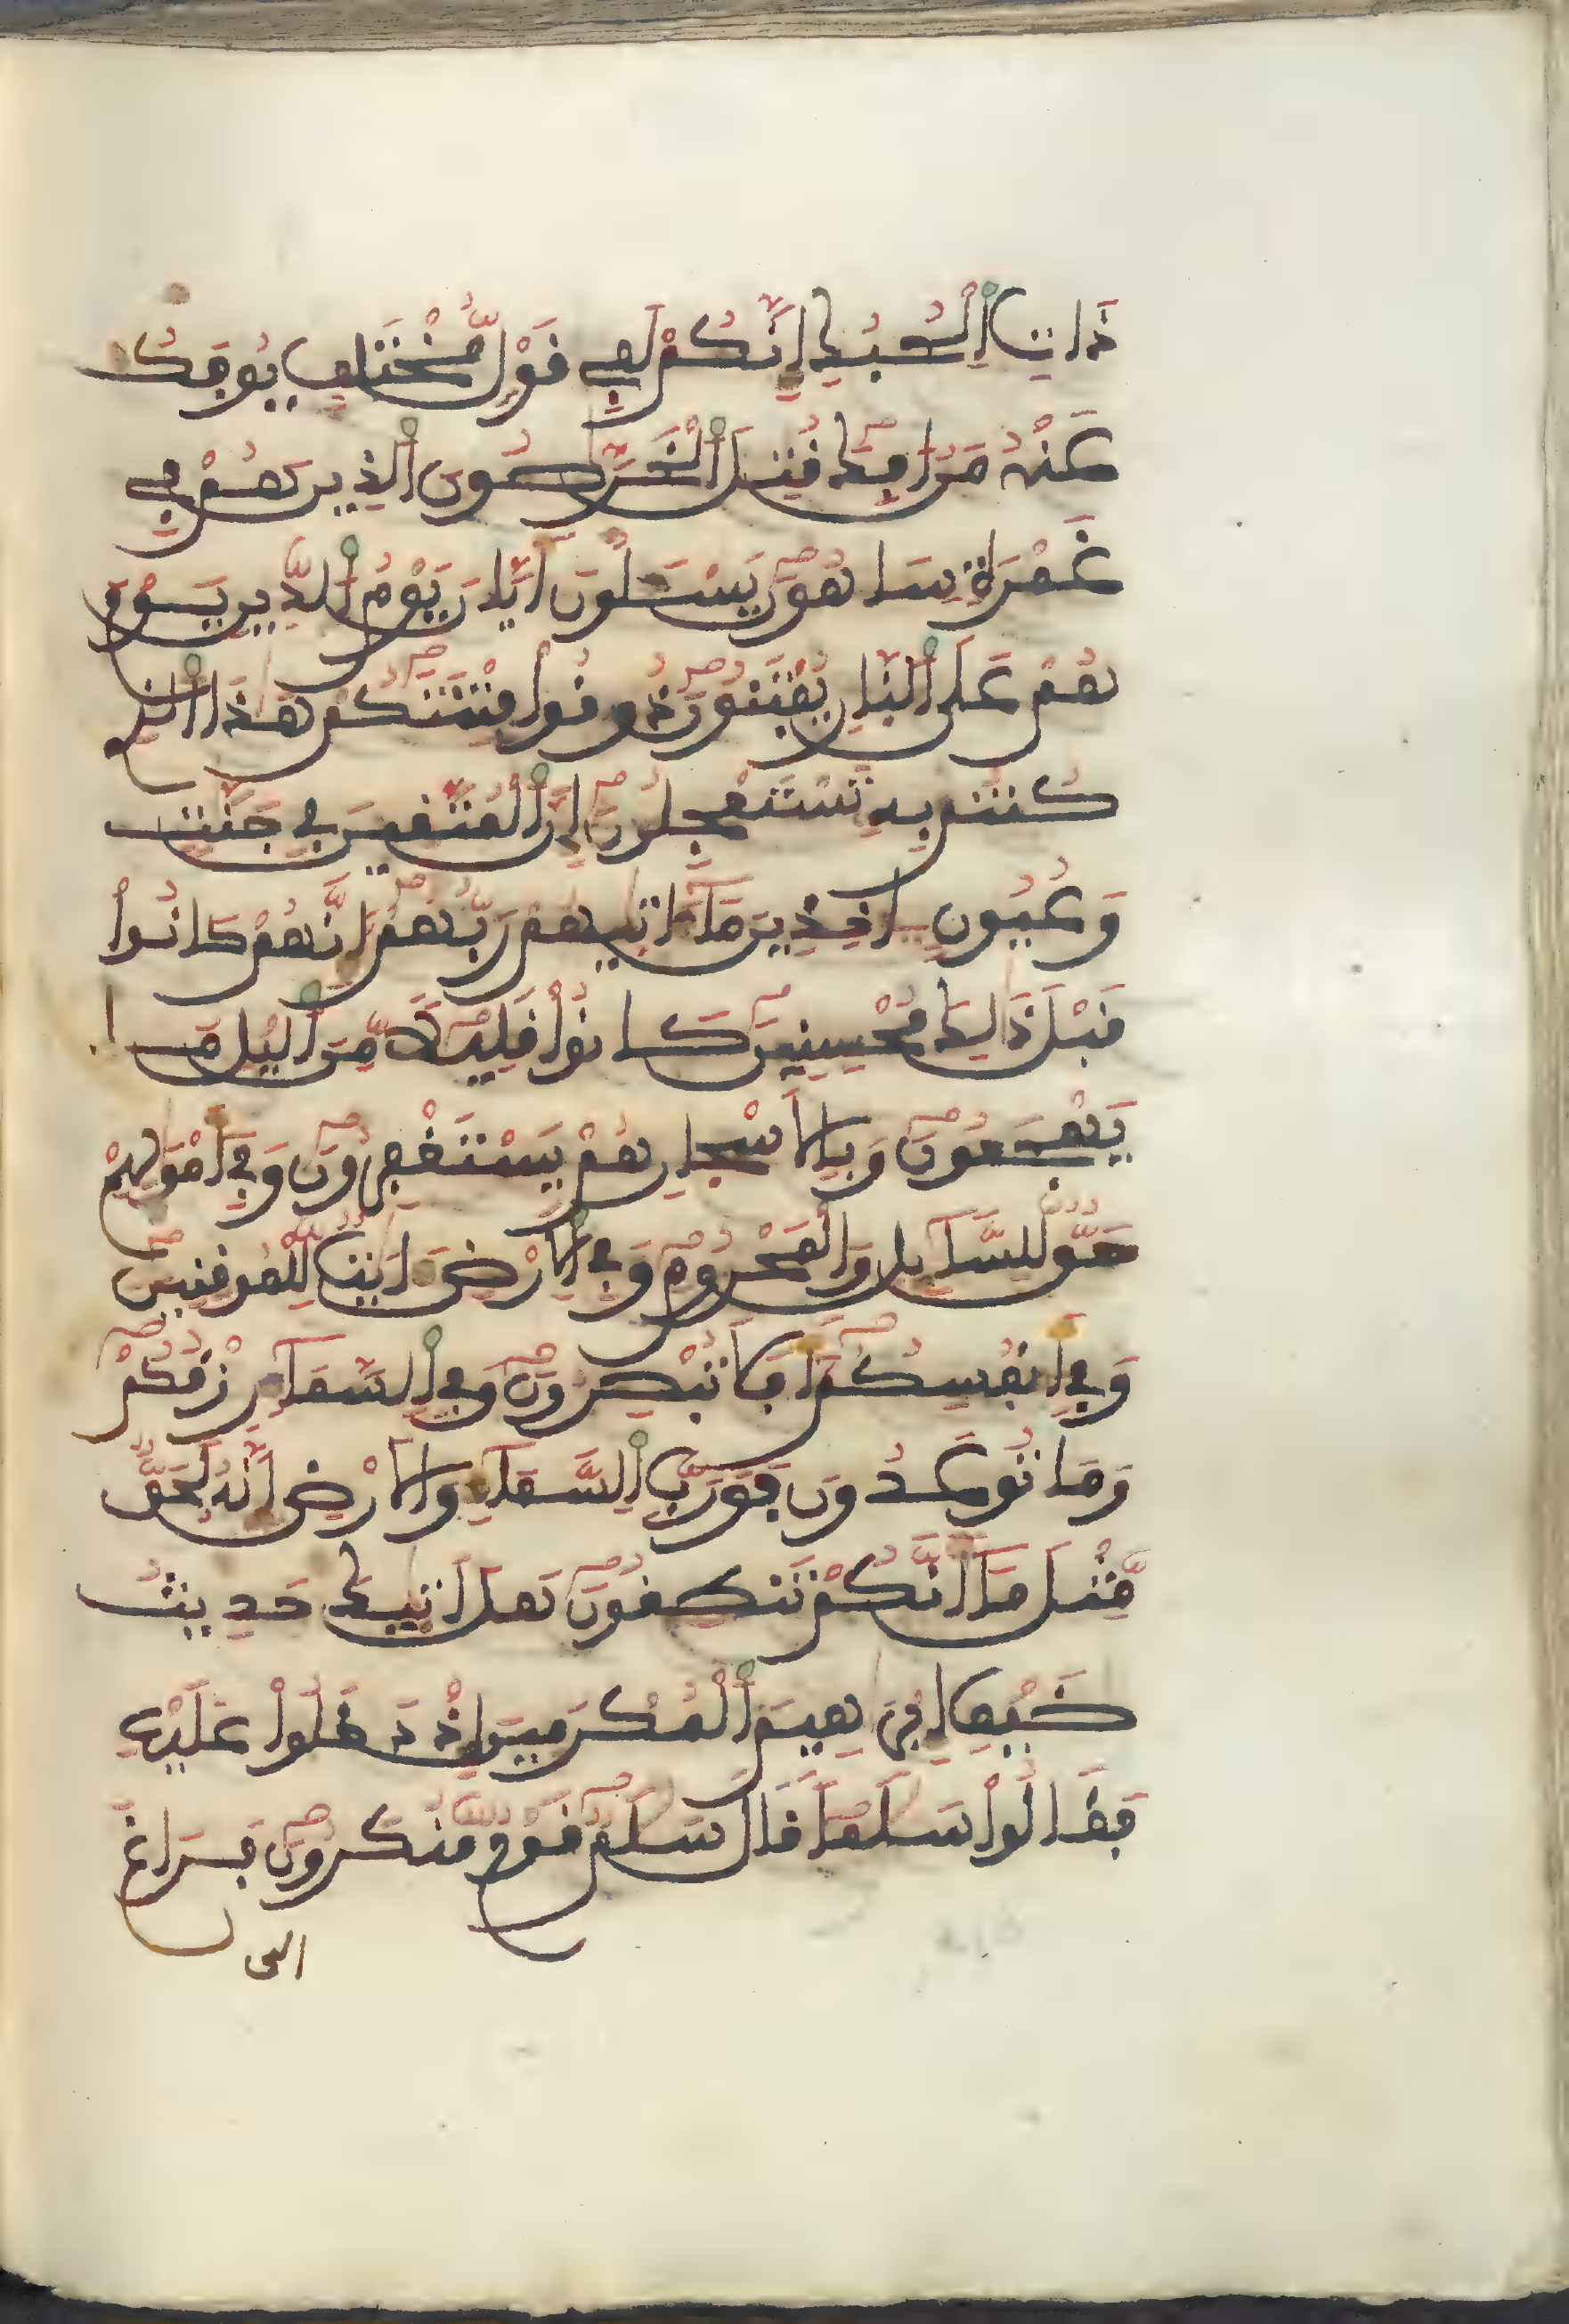 ذَاتِ اِ۬لْحُبُكِ إِنَّكُمْ لَفِے قَوْلٖ مُّخْتَلِفٖ يُوفَكُ
عَنْهُ مَنُ ا۟فِكَ قُتِلَ اَ۬لْخَرَّٰصُونَ اَ۬لذِينَ هُمْ فِے
غَمْرَةٖ سَاهُونَ يَسْـَٔلُونَ أَيَّانَ يَوْمُ اُ۬لدِّينِ يَوْمَ
هُمْ عَلَى اَ۬لنّ۪ارِ يُفْتَنُونَ ذُوقُواْ فِتْنَتَكُمْ هَٰذَا اَ۬لذِے
كُنتُم بِهِۦ تَسْتَعْجِلُونَ إِنَّ اَ۬لْمُتَّقِينَ فِے جَنَّٰتٖ
وَعُيُونٍ ـاخِذِينَ مَآ ءَات۪يٰهُمْ رَبُّهُمْ إِنَّهُمْ كَانُواْ
قَبْلَ ذَٰلِكَ مُحْسِنِينَ كَانُواْ قَلِيلاٗ مِّنَ اَ۬ليْلِ مَا
يَهْجَعُونَ وَبِالَاسْحارِ هُمْ يَسْتَغْفِرُونَ وَفِے أَمْوَٰلِهِمْ
حَقّٞ لِّلسَّآئِلِ وَالْمَحْرُومِ وَفِے اِ۬لَارْضِ ءَايَٰتٞ لِّلْمُوقِنِينَ
وَفِے أَنفُسِكُمْ أَفَلَا تُبْصِرُونَ وَفِے اِ۬لسَّمَآءِ رِزْقُكُمْ
وَمَا تُوعَدُونَ فَوَرَبِّ اِ۬لسَّمَآءِ وَالَارْضِ إِنَّهُۥ لَحَقّٞ
مِّثْلَ مَآ أَنَّكُمْ تَنطِقُونَ هَلَ ات۪يٰكَ حَدِيثُ
ضَيْفِ إِبْرَٰهِيمَ اَ۬لْمُكْرَمِينَ إِذْ دَخَلُواْ عَلَيْهِ
فَقَالُواْ سَلَٰماٗ قَالَ سَلَٰمٞ قَوْمٞ مُّنكَرُونَ فَرَاغَ
الى